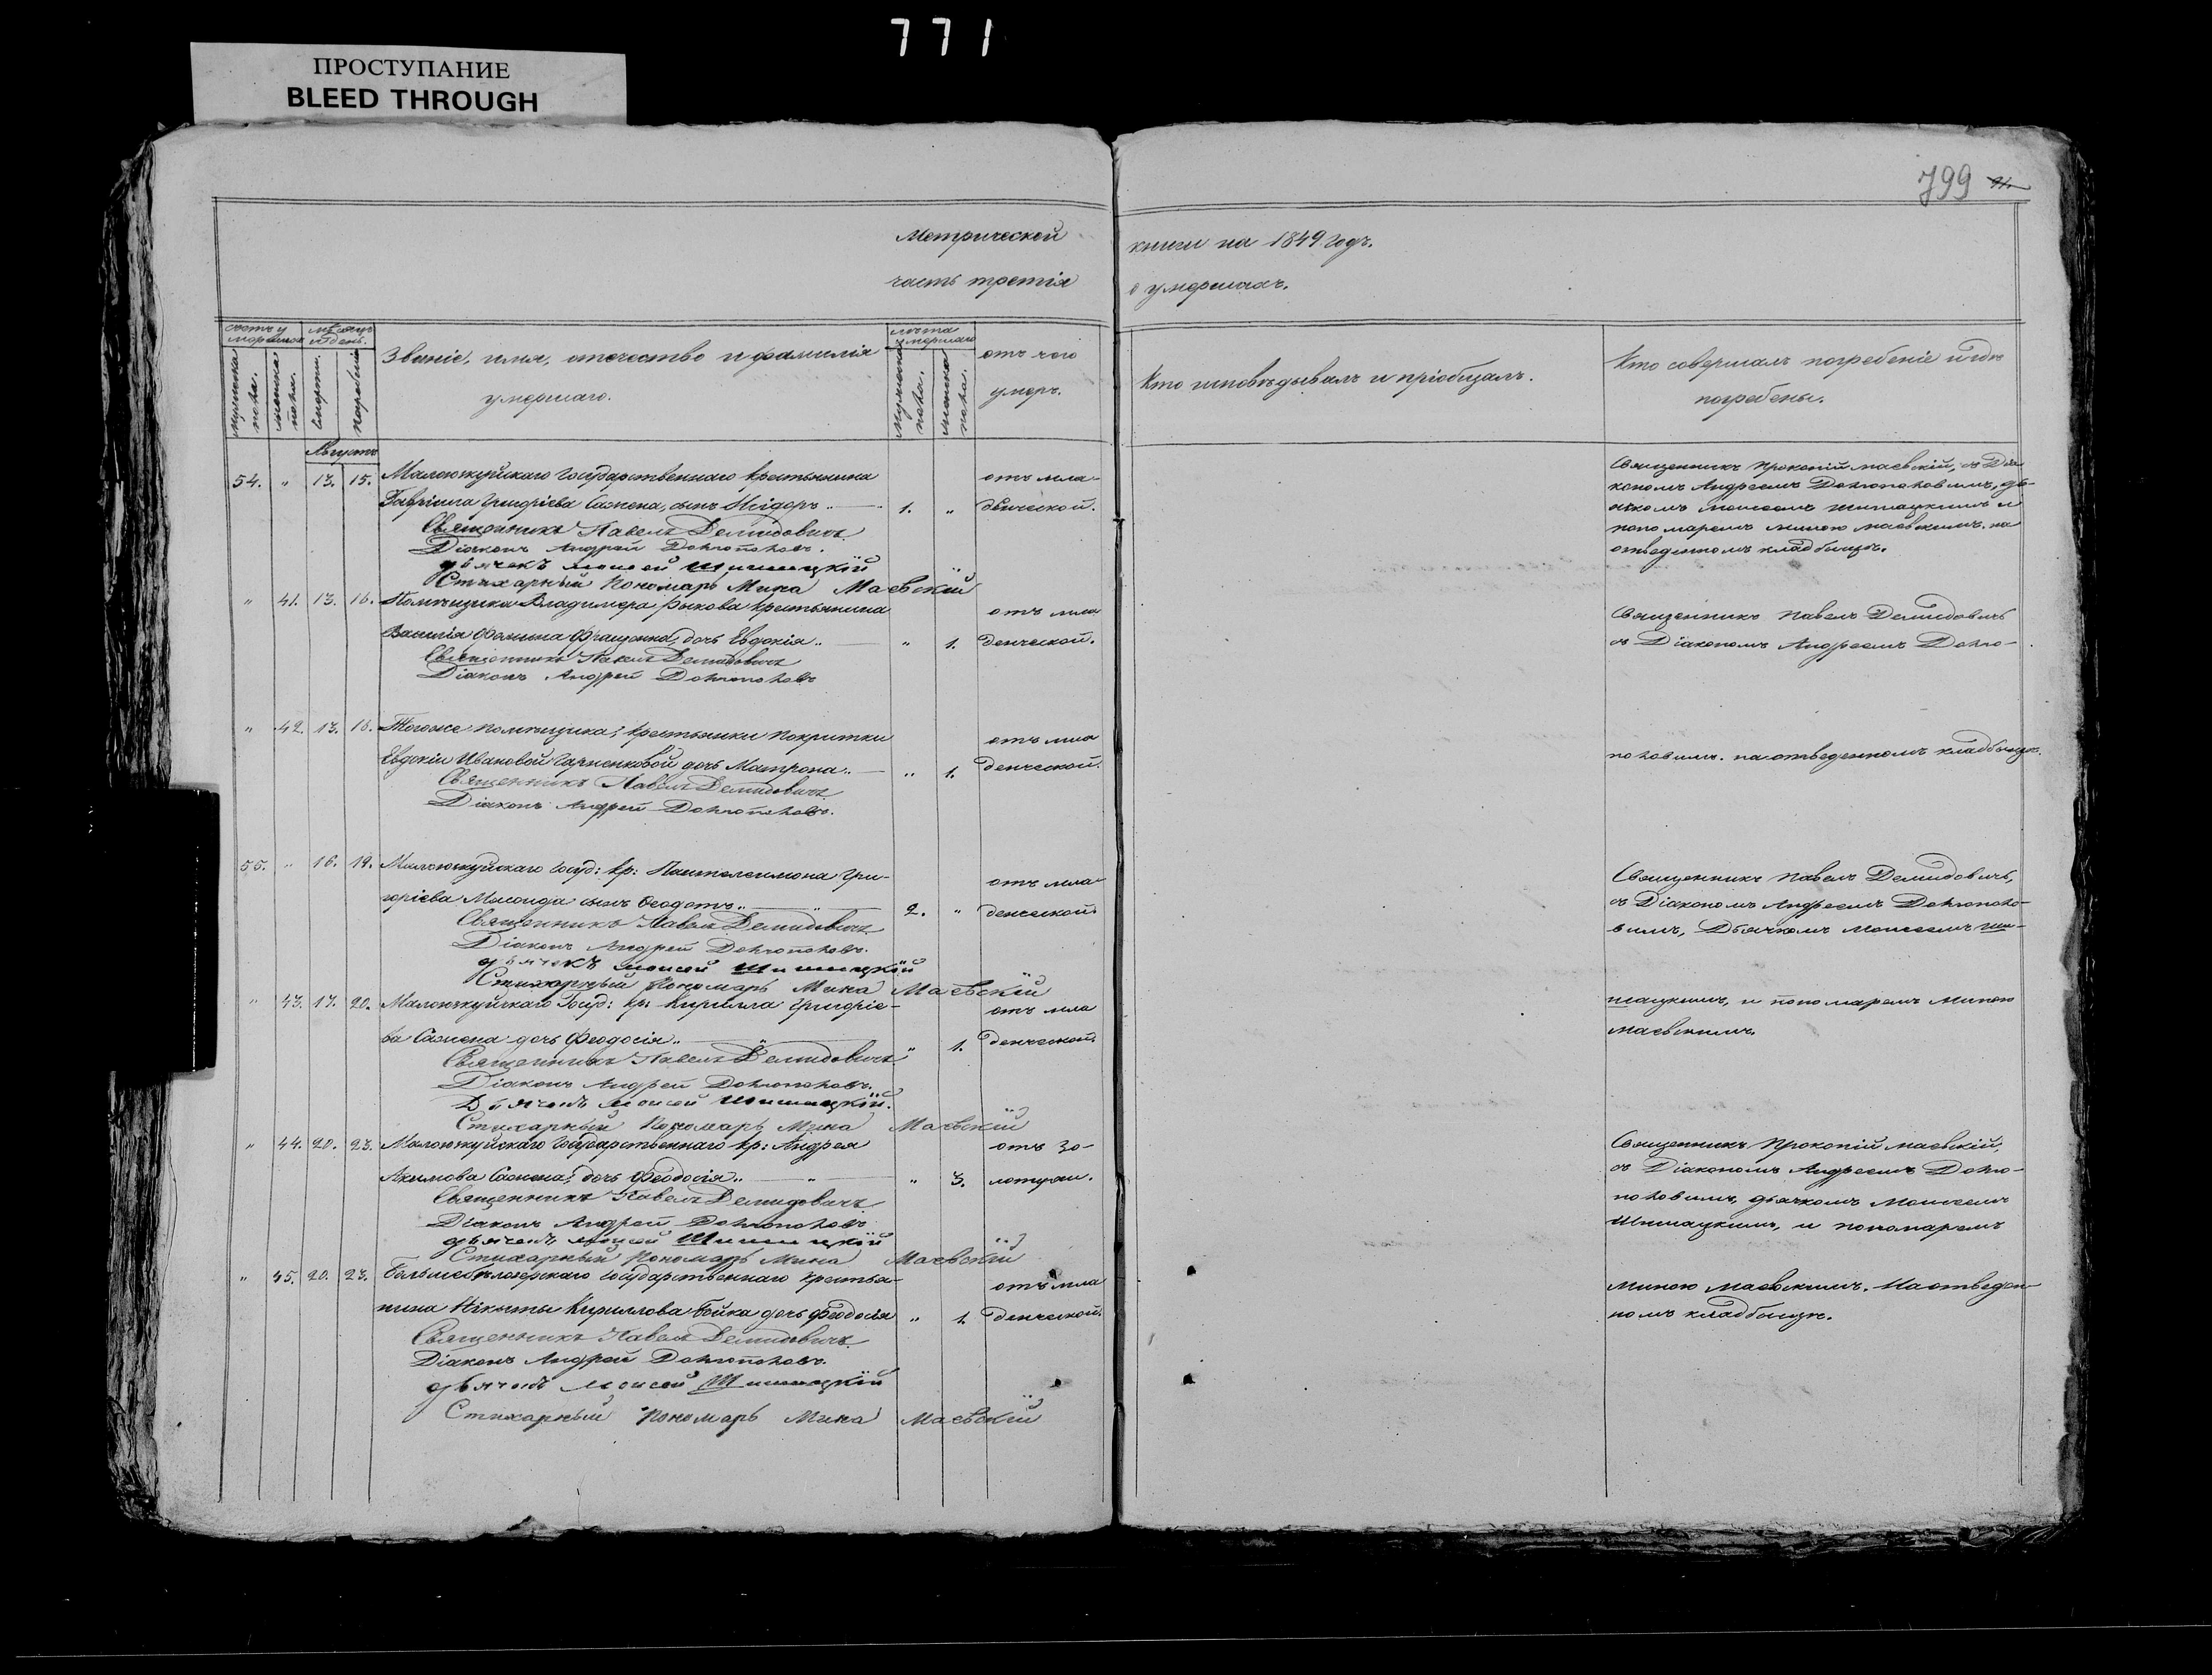 771
ПРОСТУПАНИЕ
BLEED THROUGH
799
Метрической
книги на 1849 годъ.
часть третія
о умершихъ.
счетъ у
мершихъ
мѣсяцъ
и день.
лѣта
умершаго
мужеска
пола.
женска
пола.
смерти.
погребенія
Званіе, имя, отечество и фамилія
умершаго.
мужеска
пола.
женска
пола.
отъ чего
умеръ.
Кто исповѣдывалъ и пріобщалъ.
Кто совершалъ погребеніе и гдѣ
погребены.
Августъ
54. " 13. 15. Государственнаго крестьянина
Гавріила Григоріева Сажена, сынъ 1. "
отъ мла-
денческой.
Священникъ Павелъ Демидовичъ
Діаконъ Андрей
дьячекъ Моисей Шишацкій
Стихарный Пономарь Мина Маевскій
Священникъ Прокопій Маевскій, съ Діа
кономъ Андреемъ дья-
чкомъ Моисеемъ Шишацкимъ и
пономаремъ Миною Маевскимъ. на
отведенномъ кладбищѣ.
" 41. 13. 16. Помѣщика Владимера Рыкова крестьянина
Василія дочь Евдокія " 1.
отъ мла
денческой.
Священникъ Павелъ Демидовичъ
Діаконъ Андрей
Священникъ Павелъ Демидовичъ
съ Діакономъ Андреемъ
" 42. 13. 16. Тогоже помѣщика, крестьянки покритки
Евдокіи Ивановой дочь Матрона " 1.
отъ мла
денческой.
Священникъ Павелъ Демидовичъ
Діаконъ Андрей
на отведенномъ кладбищѣ.
55. " 16. 19. Госуд: кр: Пантелеимона Гри-
горіева сынъ Ѳеодотъ 2. "
отъ мла-
денческой
Священникъ Павелъ Демидовичъ
Діаконъ Андрей
дьячекъ Моисей Шишацкій
Стихарный Пономарь Мина Маевскій
Священникъ Павелъ Демидовичъ,
съ Діакономъ Андреемъ
вымъ, Дьячкомъ Моисеемъ Ши-
" 43. 17. 20. Госуд: кр: Кирилла Григоріе-
ва Сажена дочь Феодосія " 1.
отъ мла
денческой.
Священникъ Павелъ Демидовичъ
Діаконъ Андрей
Дьячекъ Моисей Шишацкій.
Стихарный Пономарь Мина Маевскій
шацкимъ, и пономаремъ Миною
Маевскимъ.
" 44. 20. 23. Государственнаго кр: Андрея
Акимова Сажена, дочь Феодосія " 3.
отъ зо-
лотухи.
Священникъ Павелъ Демидовичъ
Діаконъ Андрей
дьячекъ Моисей Шишацкій
Стихарный Пономарь Мина Маевскій
Священникъ Прокопій Маевскій,
съ Діакономъ Андреемъ
дьячкомъ Моисеемъ
Шишацкимъ, и пономаремъ
" 45. 20. 23. Государственнаго крестья-
нина Никиты Кириллова Бойка дочь Феодосія " 1.
отъ мла
денческой.
Священникъ Павелъ Демидовичъ
Діаконъ Андрей
дьячекъ Моисей Шишацкій
Стихарный Пономарь Мина Маевскій
Миною Маевскимъ. На отведен
номъ кладбищѣ.